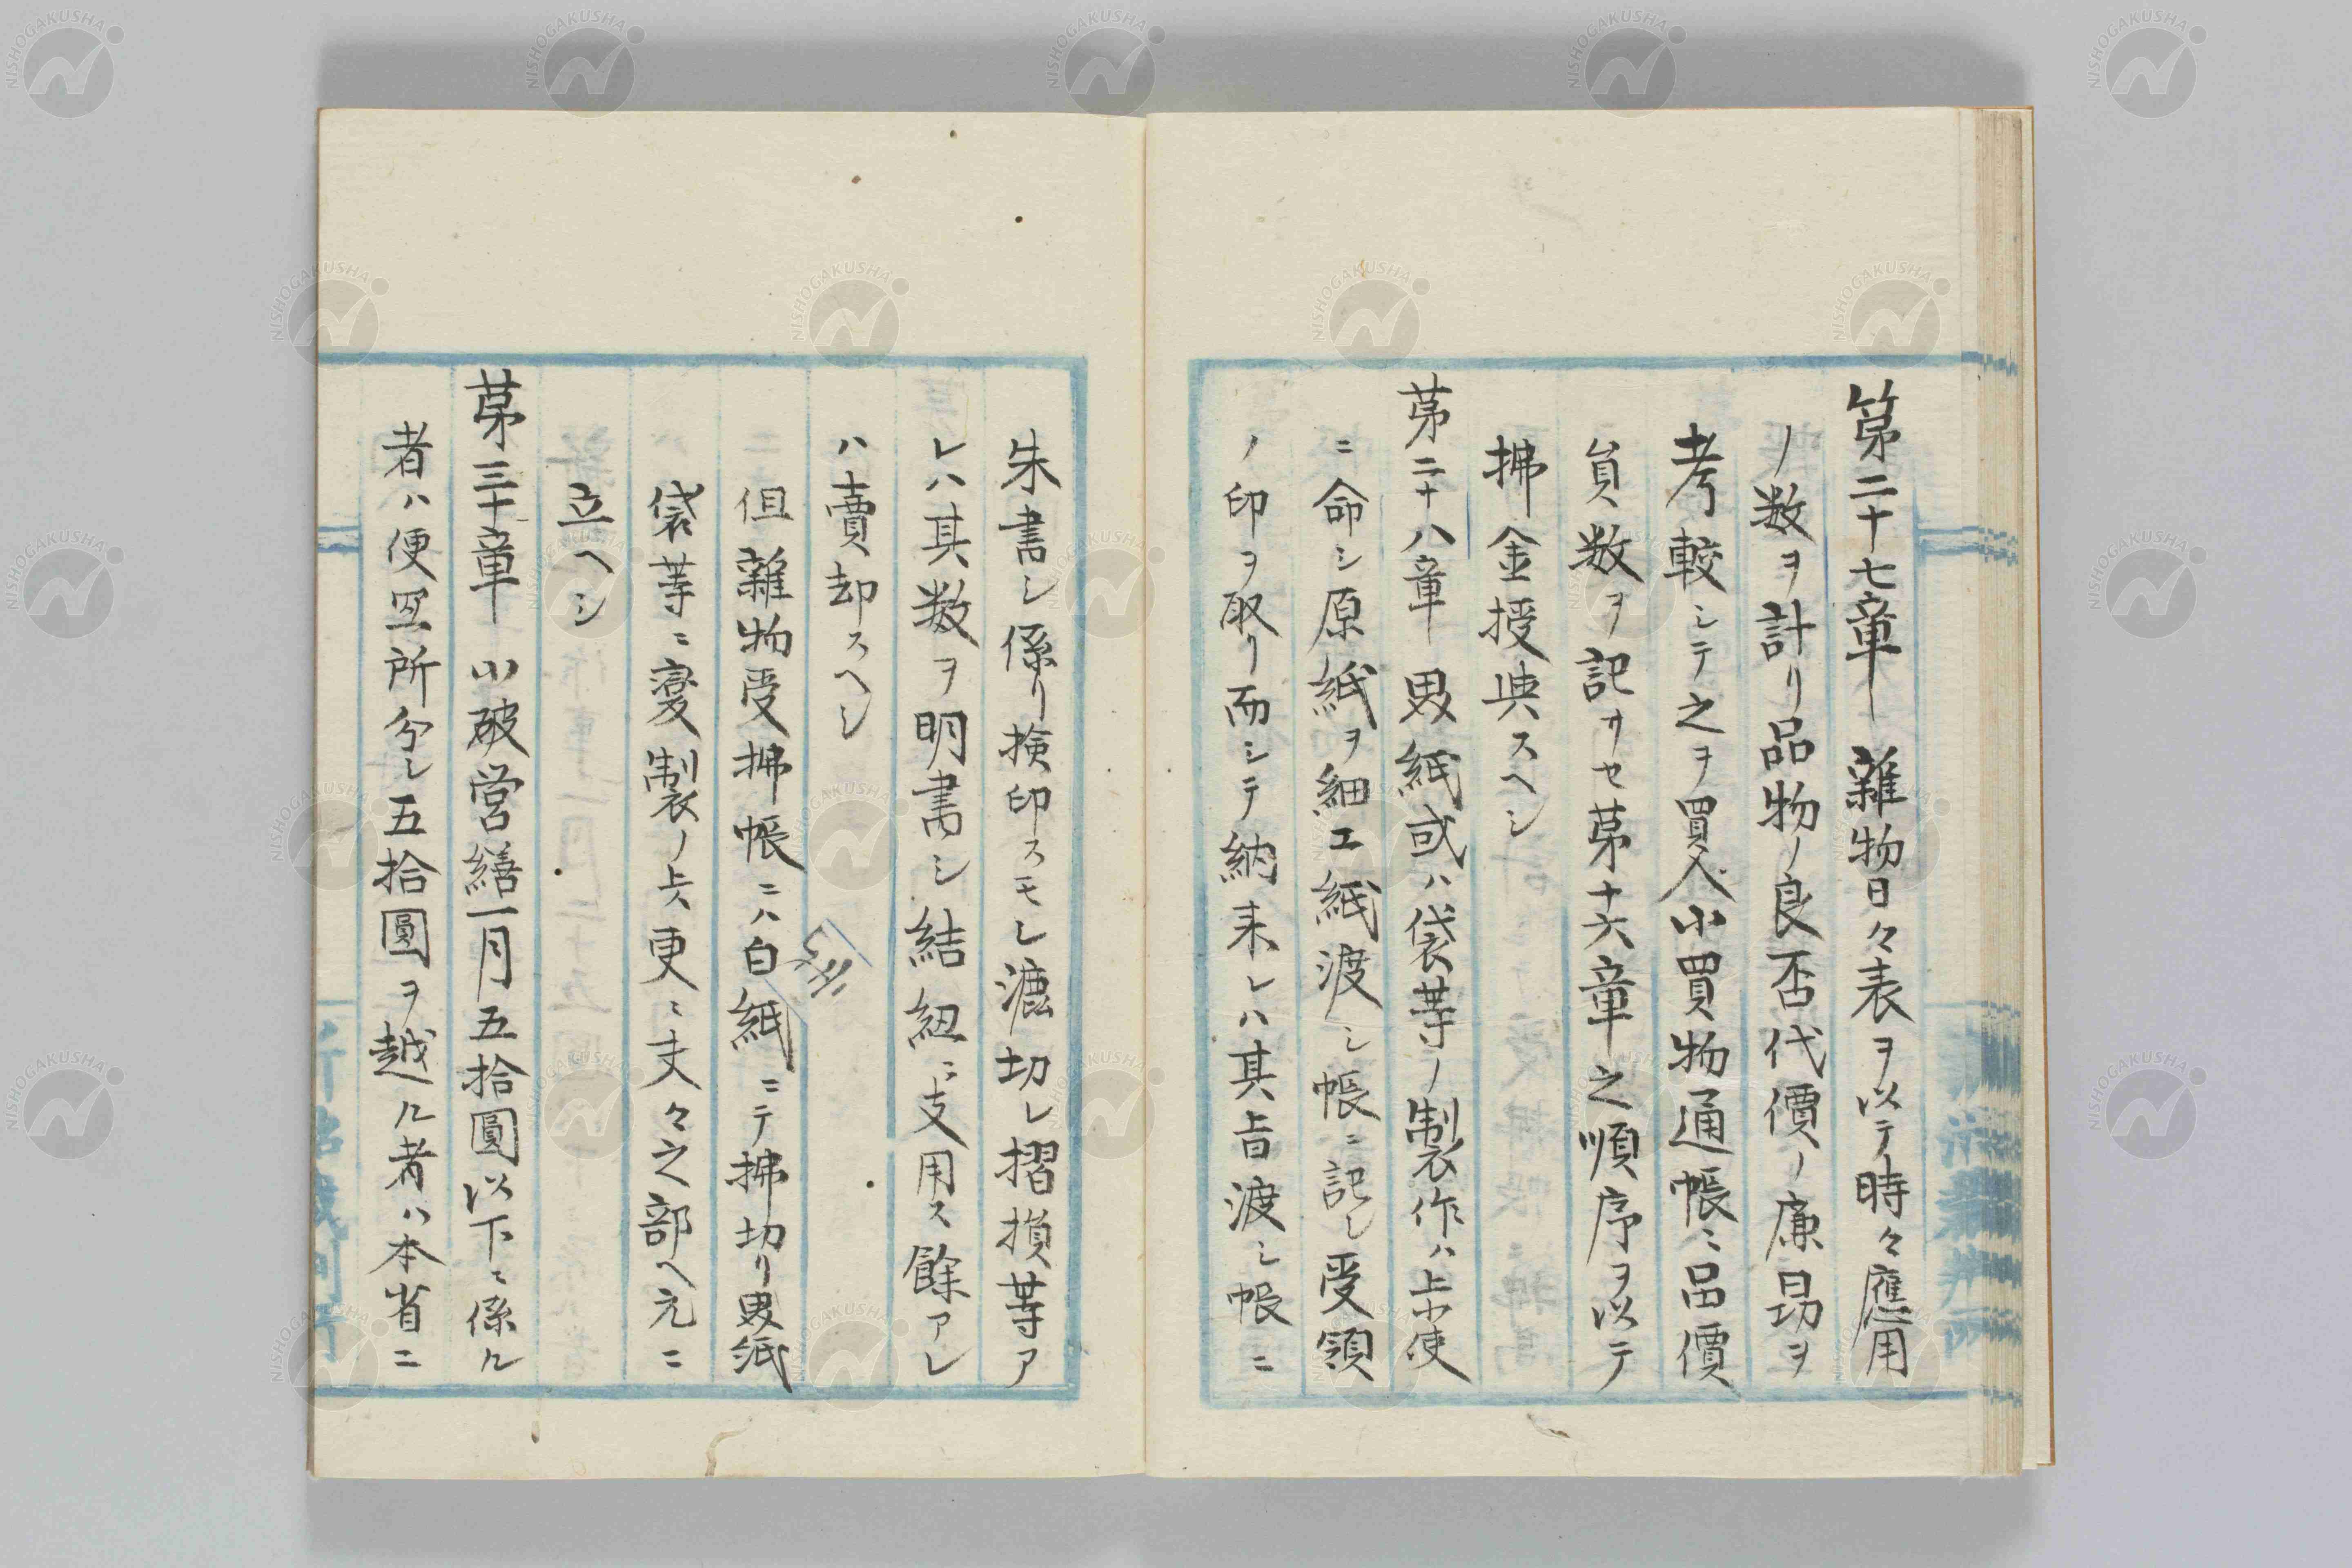 第二十七章 雜物日々表ヲ以テ時々應用
ノ数ヲ計リ品物ノ良否代價ノ廉昂ヲ
考較シテ之ヲ買入小買物通帳ニ品價
員数ヲ記サセ第十六章之順序ヲ以テ
拂金授典スヘシ
第二十八章 罫紙或ハ袋等ノ製作ハ小使
ニ命シ原紙ヲ細工紙渡シ帳ニ記シ受領
ノ印ヲ取リ而シテ納来レハ其旨渡シ帳ニ
朱書シ係リ検印スモシ漉切レ摺損等ア
レハ其数ヲ明書シ結紐ニ支用ス餘アレ
ハ賣却スヘシ
但雜物受拂帳ニハ白紙ニテ拂切リ罫紙
袋等ニ変製ノ上ハ更ニ夫々之部ヘ元ニ
立ヘシ
第三十章 小破営繕一月五拾圓以下ニ係ル
者ハ便宜所分シ五拾圓ヲ越ル者ハ本省ニ
NISHOGAKUSHA